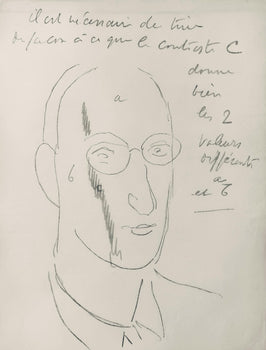 il est nécessaire de tirer
de façon à ce que le contraste C
donne
bien
les 2
valeurs
différentes
a
et b
a
b